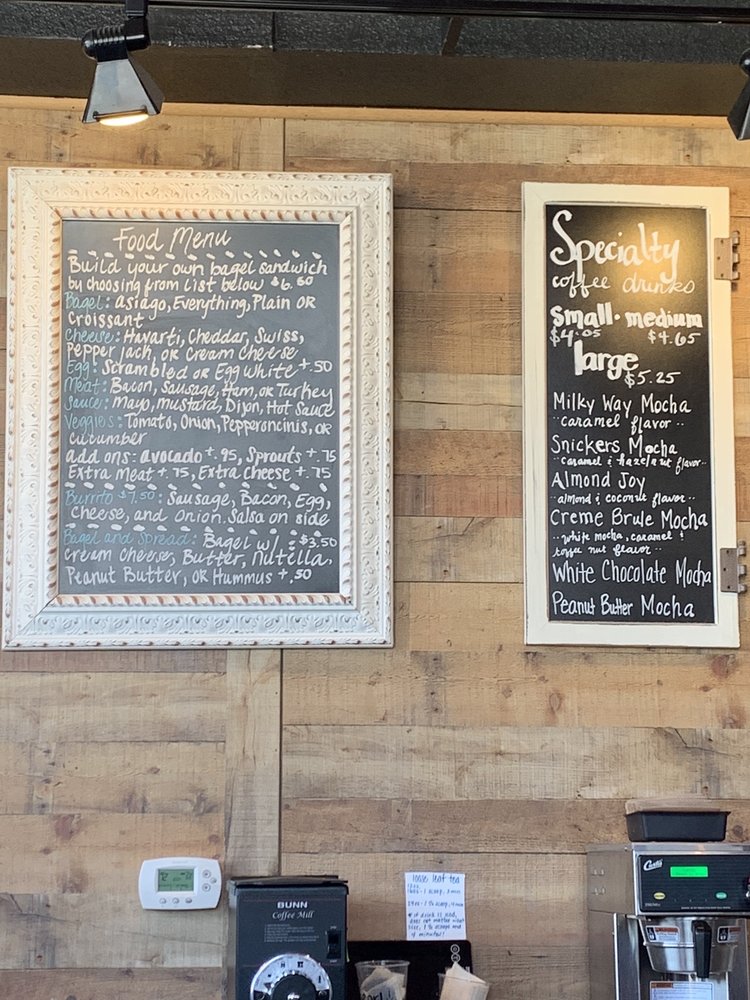 Food Menu
Build your own bagel sandwich
by choosing from list below $6.50
Bagel: asiago, Everything, Plain OR
Croissant
Cheese: Havarti, Cheddar, Swiss,
Pepper jack, OR Cream Cheese
Egg: Scrambled or Egg White +.50
Meat: Bacon, Sausage, Ham, or Turkey
Sauce: Mayo, mustard, Dijon, Hot Sauce
Veggies: Tomato, Onion, Pepperoncinis, OR
cucumber
add ons: avocado +.95, Sprouts +.75
Extra Meat +.75, Extra Cheese +.75
Burrito $7.50: Sausage, Bacon, Egg,
Cheese, and Onion. Salsa on side
Bagel and Spread: Bagel w/ : $3.50
Cream Cheese, Butter, Nutella,
Peanut Butter, OR Hummus +.50
Specialty
coffee drinks
small. medium
$4.05 $4.65
large
$5.25
Milky Way Mocha
..caramel flavor..
Snickers Mocha
..caramel & hazelnut flavor..
Almond Joy
..almond & coconut flavor..
Creme Brule Mocha
..white mocha, caramel &
toffee nut flavor..
White Chocolate Mocha
Peanut Butter Mocha
loose leaf tea
16oz - 1 scoop, 3 min
BUNN
Coffee Mill
Curtis